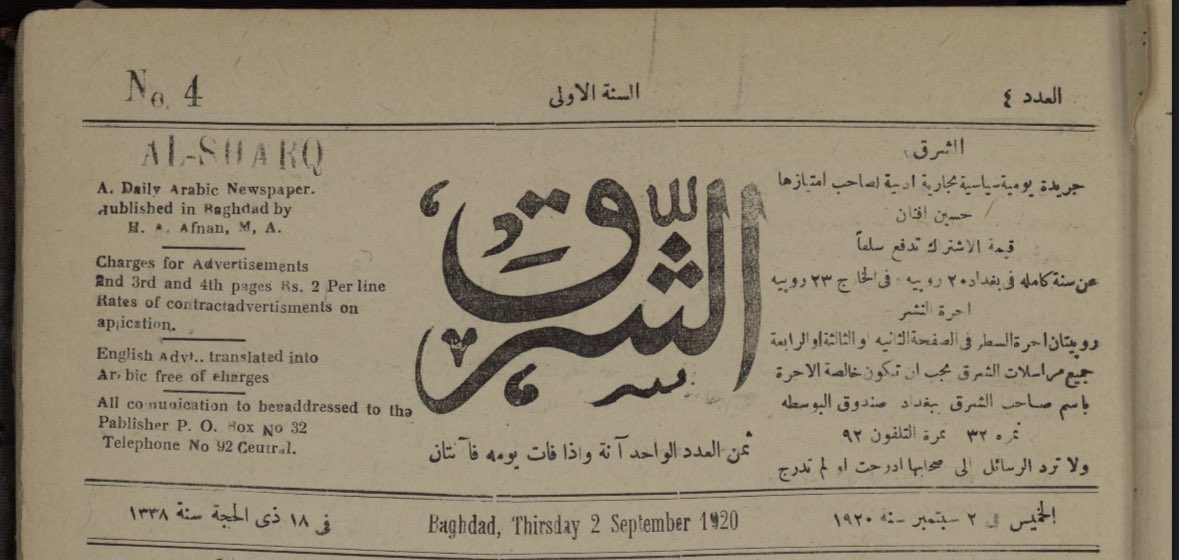 No. 4
السنة الاولى
العدد ٤
AL-SHARQ
A. Daily Arabic Newspaper.
published in Baghdad by
H. A. Afnan, M, A.
Charges for Advertisements
2nd 3rd and 4th pages Rs. 2 Per line
Rates of contractadvertisments on
application.
English Advt.. translated into
Arabic free of eharges
All comunication to beeaddressed to the
Pablisher P. O. Box No 32
Telephone No 92 Ceutral.
الشرق
ثمن العدد الواحد آنة واذا فات يومه فآنتان
الشرق
جريدة يومية سياسية تجارية ادبية لصاحب امتيازها
حسين افنان
قيمة الاشتراك تدفع سلفاً
عن سنة كامله فى بغداد ٢٠ روبيه وفى الخارج ٢٣ روبيه
اجرة النشر
روبيتان اجرة السطر فى الصفحة الثانيه او الثالثة او الرابعة
جميع مراسلات الشرق يجب ان تكون خالصة الاجرة
باسم صاحب الشرق ببغداد صندوق البوسطه
نمره ٣٢ نمرة التلفون ٩٢
ولا ترد الرسائل الى صحابها ادرجت او لم تدرج
فى ١٨ ذى الحجة سنة ١٣٣٨
Baghdad, Thirsday 2 September 1920
الخميس فى ٢ سبتمبر سنه ١٩٢٠